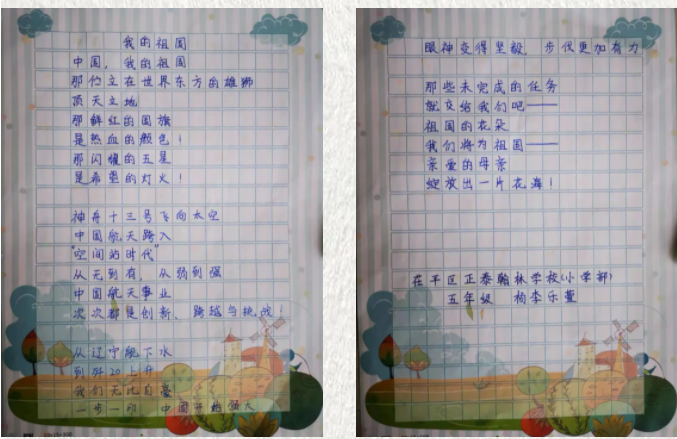 我的祖国
中国，我的祖国
那伫立在世界东方的雄狮
顶天立地
那鲜红的国旗
是热血的颜色！
那闪耀的五星
是希望的灯火！
神舟十三号飞向太空
中国航天跨入
“空间站时代”
从无到有，从弱到强
中国航天事业
次次都是创新、跨越与挑战
从辽宁舰下水
到歼20上升
我们无比自豪
一步一印 中国开始强大
眼神变得坚毅，步伐更加有力
那些未完成的任务
就交给我们吧——
祖国的花朵
我们将为祖国——
亲爱的母亲
绽放出一片花海！
茌平区正泰翰林学校(小学部)
五年级 李乐萱